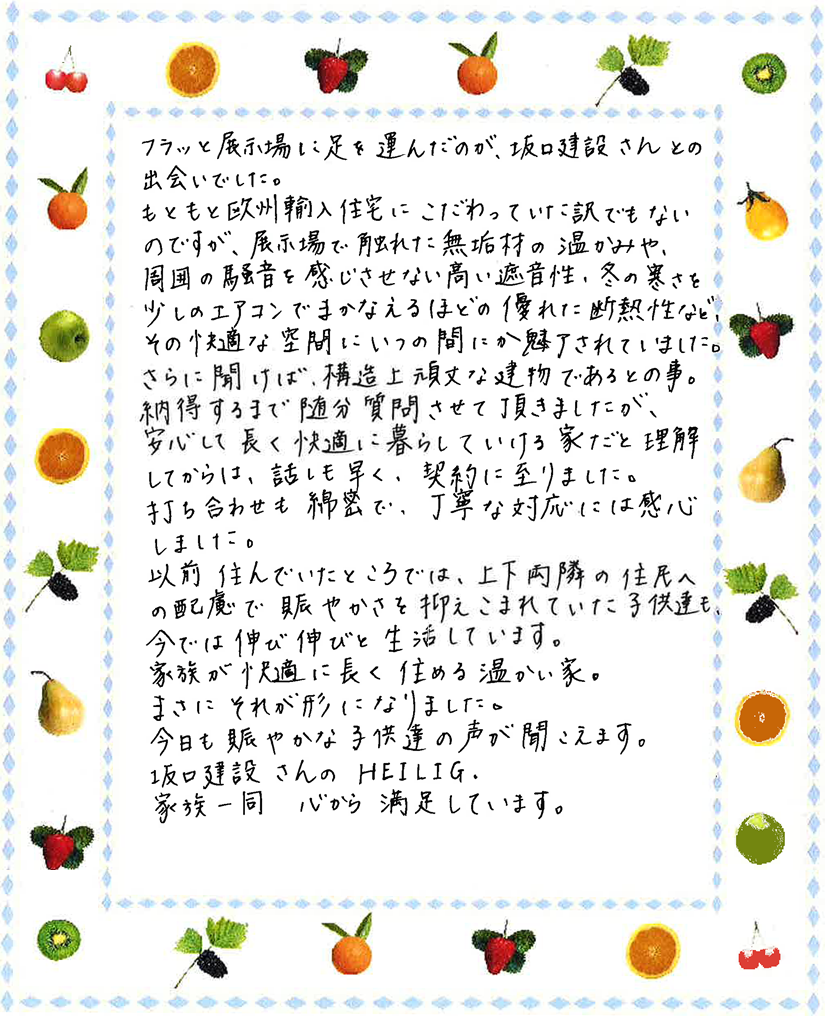 フラッと展示場に足を運んだのが、坂口建設さんとの
出会いでした。
もともと欧州輸入住宅にこだわっていた訳でもない
のですが、展示場で触れた無垢材の温かみや、
周囲の騒音を感じさせない高い遮音性、冬の寒さを
少しのエアコンでまかなえるほどの優れた断熱性など、
その快適な空間にいつの間にか魅了されていました。
さらに聞けば、構造上頑丈な建物であるとの事。
納得するまで随分質問させて頂きましたが、
安心して長く快適に暮らしていける家だと理解
してからは、話しも早く、契約に至りました。
打ち合わせも綿密で、丁寧な対応には感心
しました。
以前住んでいたところでは、上下両隣の住民へ
の配慮で賑やかさを抑えこまれていた子供達も、
今では伸び伸びと生活しています。
家族が快適に長く住める温かい家。
まさにそれが形になりました。
今日も賑やかな子供達の声が聞こえます。
坂口建設さんのHEILIG.
家族一同 心から満足しています。